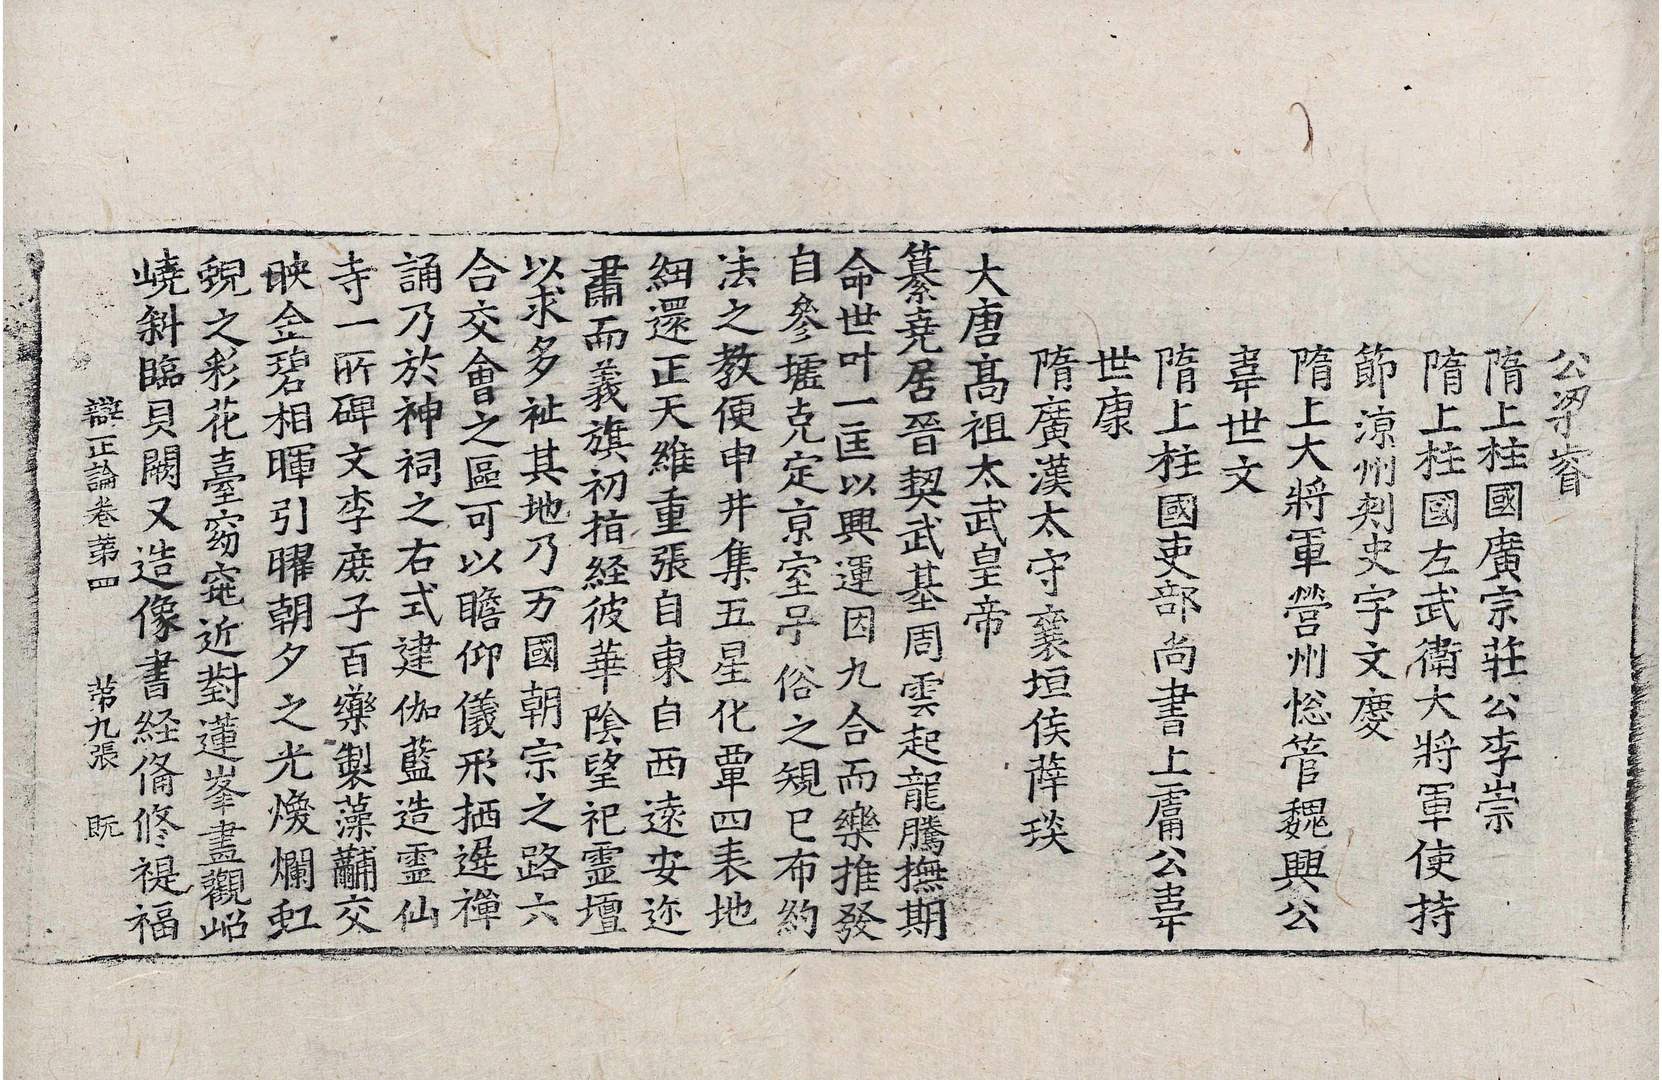 公梁睿
隋上柱國廣宗莊公李崇
隋上柱國左武衛大將軍使持
節涼州刾史宇文慶
隋上大將軍營州惣管魏興公
韋世文
隋上柱國吏部尚書上庸公韋
世康
隋廣漢太守襄垣侯薛琰
大唐髙祖太武皇帝
纂堯居晉契武基周雲起龍騰撫期
命世叶一匡以興運因九合而樂推發
自參墟克定京室孚俗之䂓已布約
法之教便申井集五星化覃四表地
細還正天維重張自東自西逺安迩
肅而義旗初指経彼華隂望祀霊壇
以求多祉其地乃万國朝宗之路六
合交會之區可以瞻仰儀形栖遅禪
誦乃於神祠之右式建伽藍造霊仙
寺一所碑文李庶子百藥製藻黼交
映金碧相暉引曜朝夕之光煥爛虹
蜺之彩花臺窈窕近對蓮峯畫觀岧
嶢斜臨貝闕又造像書経俻修禔福
辯正論卷苐四 苐九張 旣